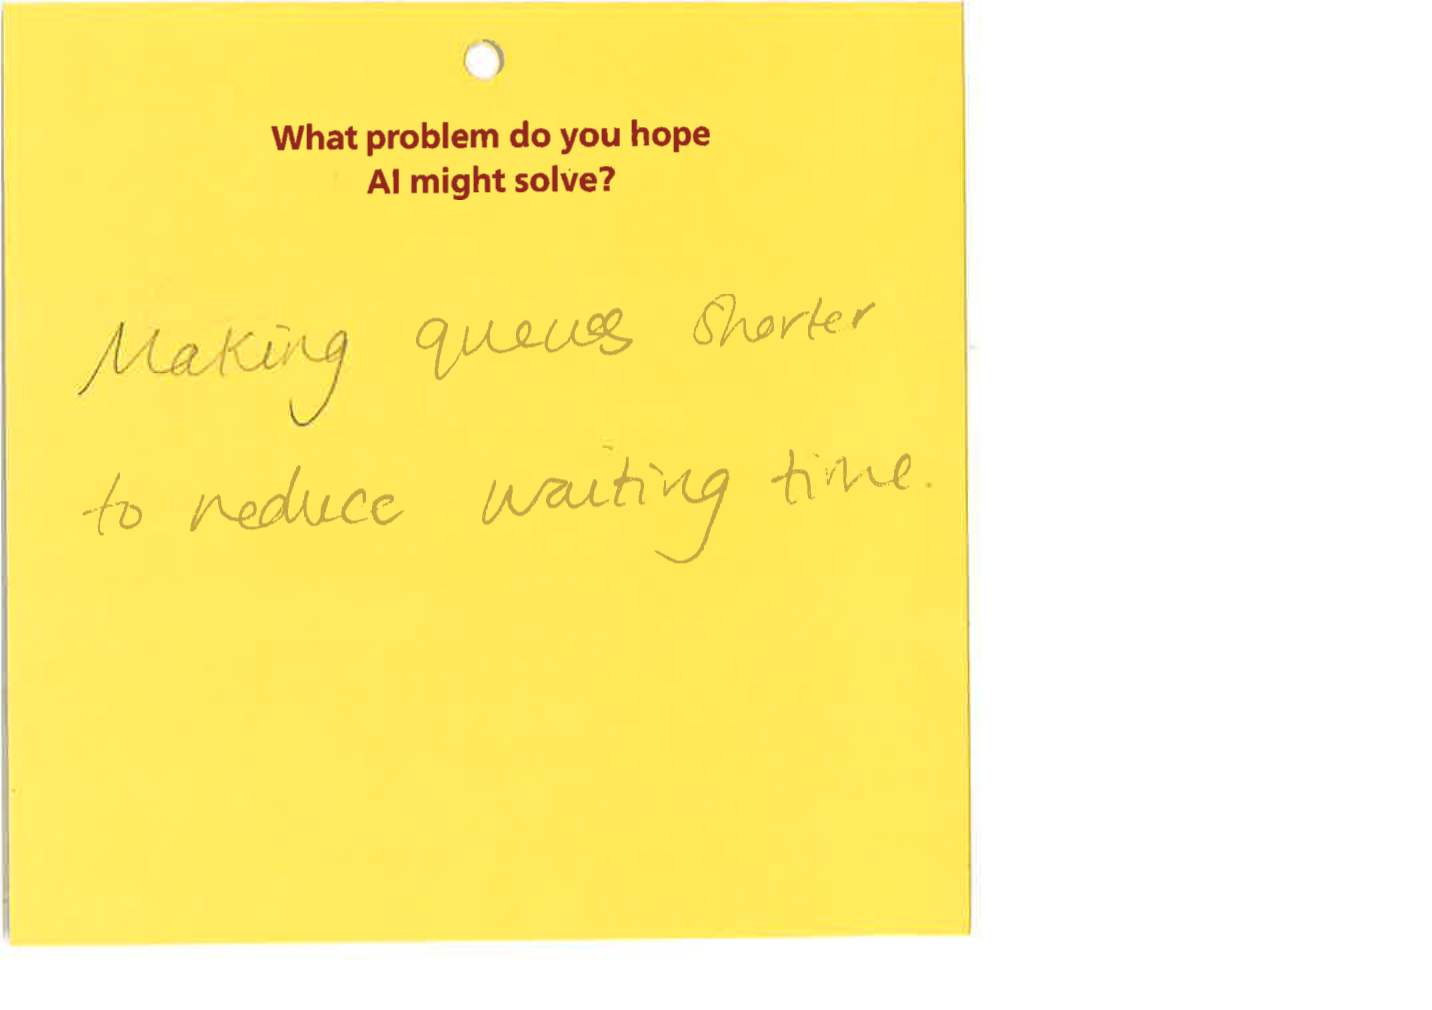 What problem do you hope
AI might solve?
Making queues shorter
to reduce waiting time.